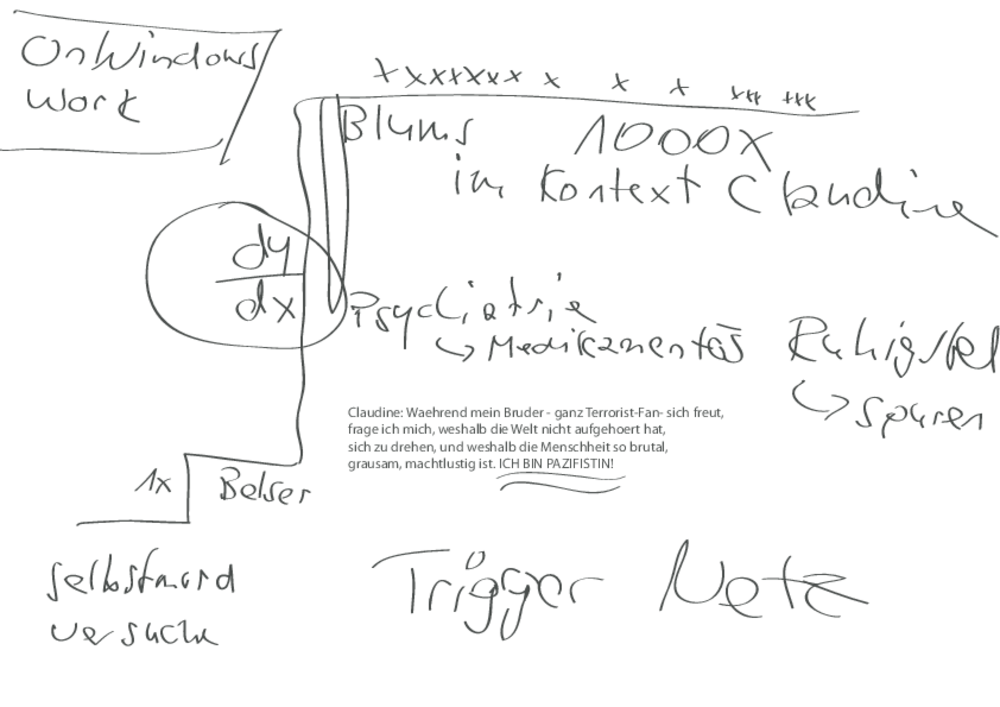 OnWindows
Work
xxxxxxx x x x xxx xxx
Blums 1000x
im Kontext Claudine
dy
dx
Psychiatrie
↳ Medikamentös Ruhigstel
↳ Spuren
Claudine: Waehrend mein Bruder - ganz Terrorist-Fan- sich freut,
frage ich mich, weshalb die Welt nicht aufgehoert hat,
sich zu drehen, und weshalb die Menschheit so brutal,
grausam, machtlustig ist. ICH BIN PAZIFISTIN!
1x Belser
Selbstmord
versuche
Trigger Netz